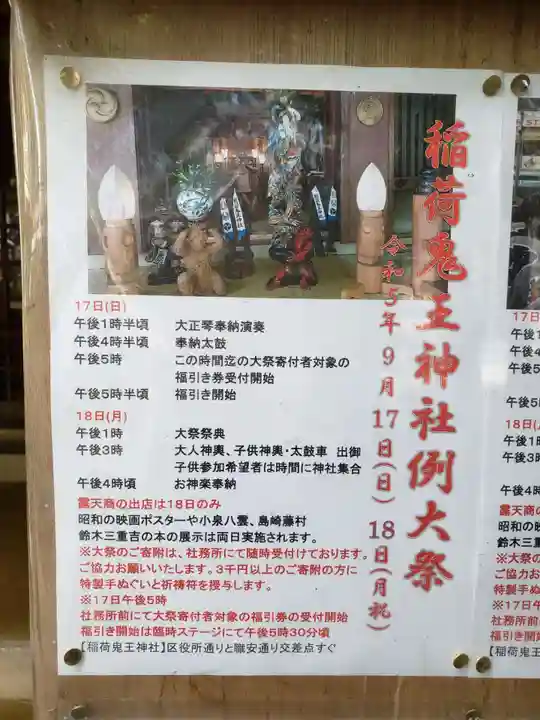 稲荷鬼王神社例大祭
令和5年9月17日(日) 18日(月祝)
17日(日)
午後1時半頃 大正琴奉納演奏
午後4時半頃 奉納太鼓
午後5時 この時間迄の大祭寄付者対象の
福引き券受付開始
午後5時半頃 福引き開始
18日(月)
午後1時 大祭祭典
午後3時 大人神輿、子供神輿・太鼓車 出御
子供参加希望者は時間に神社集合
午後4時頃 お神楽奉納
露天商の出店は18日のみ
昭和の映画ポスターや小泉八雲、島崎藤村
鈴木三重吉の本の展示は両日実施されます。
※大祭のご寄附は、社務所にて随時受付けております。
ご協力お願いいたします。3千円以上のご寄附の方に
特製手ぬぐいと祈祷符を授与します。
※17日午後5時
社務所前にて大祭寄付者対象の福引券の受付開始
福引き開始は臨時ステージにて午後5時30分頃
【稲荷鬼王神社】区役所通りと職安通り交差点すぐ
17日(日)
午後1時
午後4時
午後5
午後5
18日(
午後1
午後3
午後4
露天商
昭和の
鈴木三
※大祭
ご協力
特製手
※17日
社務所
福引き
【稲荷